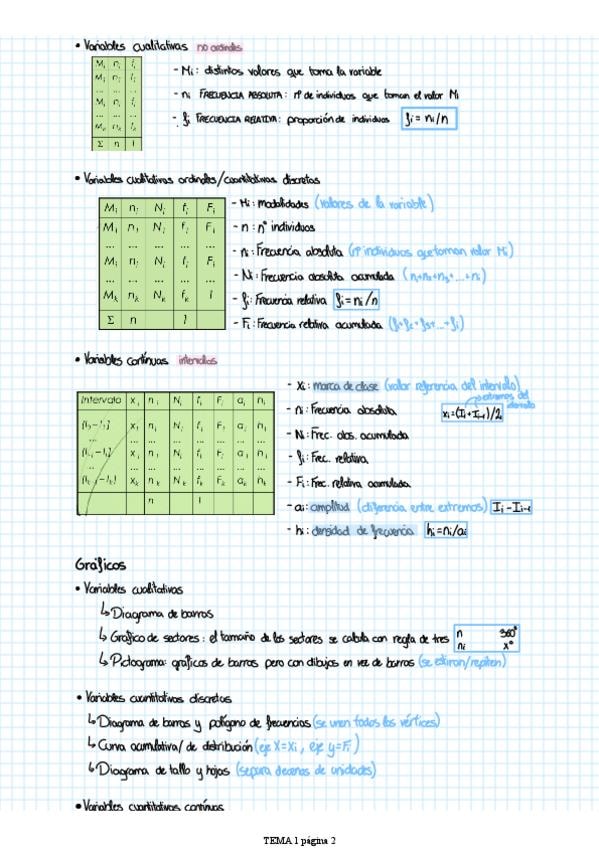 • Variables cualitativas no ordinales
Mi ni fi
M1 n1 f1
... ... ...
Mi ni fi
... ... ...
Mk nk fk
Σ n 1
- Mi: distintos valores que toma la variable
- ni FRECUENCIA ABSOLUTA: nº de individuos que toman el valor Mi
- fi FRECUENCIA RELATIVA: proporción de individuos fi = ni/n
• Variables cualitativas ordinales/cuantitativas discretas
Mi ni Ni fi Fi
M1 n1 N1 f1 F1
... ... ... ... ...
Mi ni Ni fi Fi
... ... ... ... ...
Mk nk Nk fk 1
Σ n 1
- Mi: modalidades (valores de la variable)
- n: nº individuos
- ni: Frecuencia absoluta (nº individuos que toman valor Mi)
- Ni: Frecuencia absoluta acumulada (n1+n2+n3+...+ni)
- fi: Frecuencia relativa fi = ni/n
- Fi: Frecuencia relativa acumulada (f1+f2+f3+...+fi)
• Variables continuas intervalos
Intervalo xi ni Ni fi Fi ai hi
x1 n1 N1 f1 F1 a1 h1
... ... ... ... ... ... ... ...
xi ni Ni fi Fi ai hi
... ... ... ... ... ... ... ...
xk nk Nk fk Fk ak hk
n 1
- Xi: marca de clase (valor referencia del intervalo)
extremos del intervalo
- ni: Frecuencia absoluta xi=(Ii+Ii-1)/2
- Ni: Frec. abs. acumulada
- fi: Frec. relativa
- Fi: Frec. relativa acumulada
- ai: amplitud (diferencia entre extremos) Ii-Ii-1
- hi: densidad de frecuencia hi=ni/ai
Gráficos
• Variables cualitativas
↳ Diagrama de barras
↳ Gráfico de sectores: el tamaño de los sectores se calcula con regla de tres n 360°
ni x°
↳ Pictograma: gráficos de barras pero con dibujos en vez de barras (se estiran/repiten)
• Variables cuantitativas discretas
↳ Diagrama de barras y polígono de frecuencias (se unen todos los vértices)
↳ Curva acumulativa/de distribución (eje X=Xi, eje y=Fi)
↳ Diagrama de tallo y hojas (separa decenas de unidades)
• Variables cuantitativas continuas
TEMA 1 página 2